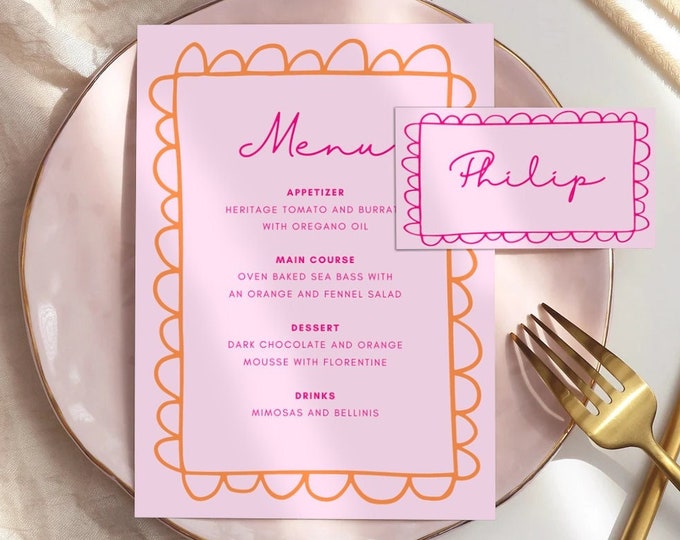 Menu
APPETIZER
HERITAGE TOMATO AND BURRAT
WITH OREGANO OIL
MAIN COURSE
OVEN BAKED SEA BASS WITH
AN ORANGE AND FENNEL SALAD
DESSERT
DARK CHOCOLATE AND ORANGE
MOUSSE WITH FLORENTINE
DRINKS
MIMOSAS AND BELLINIS
Philip